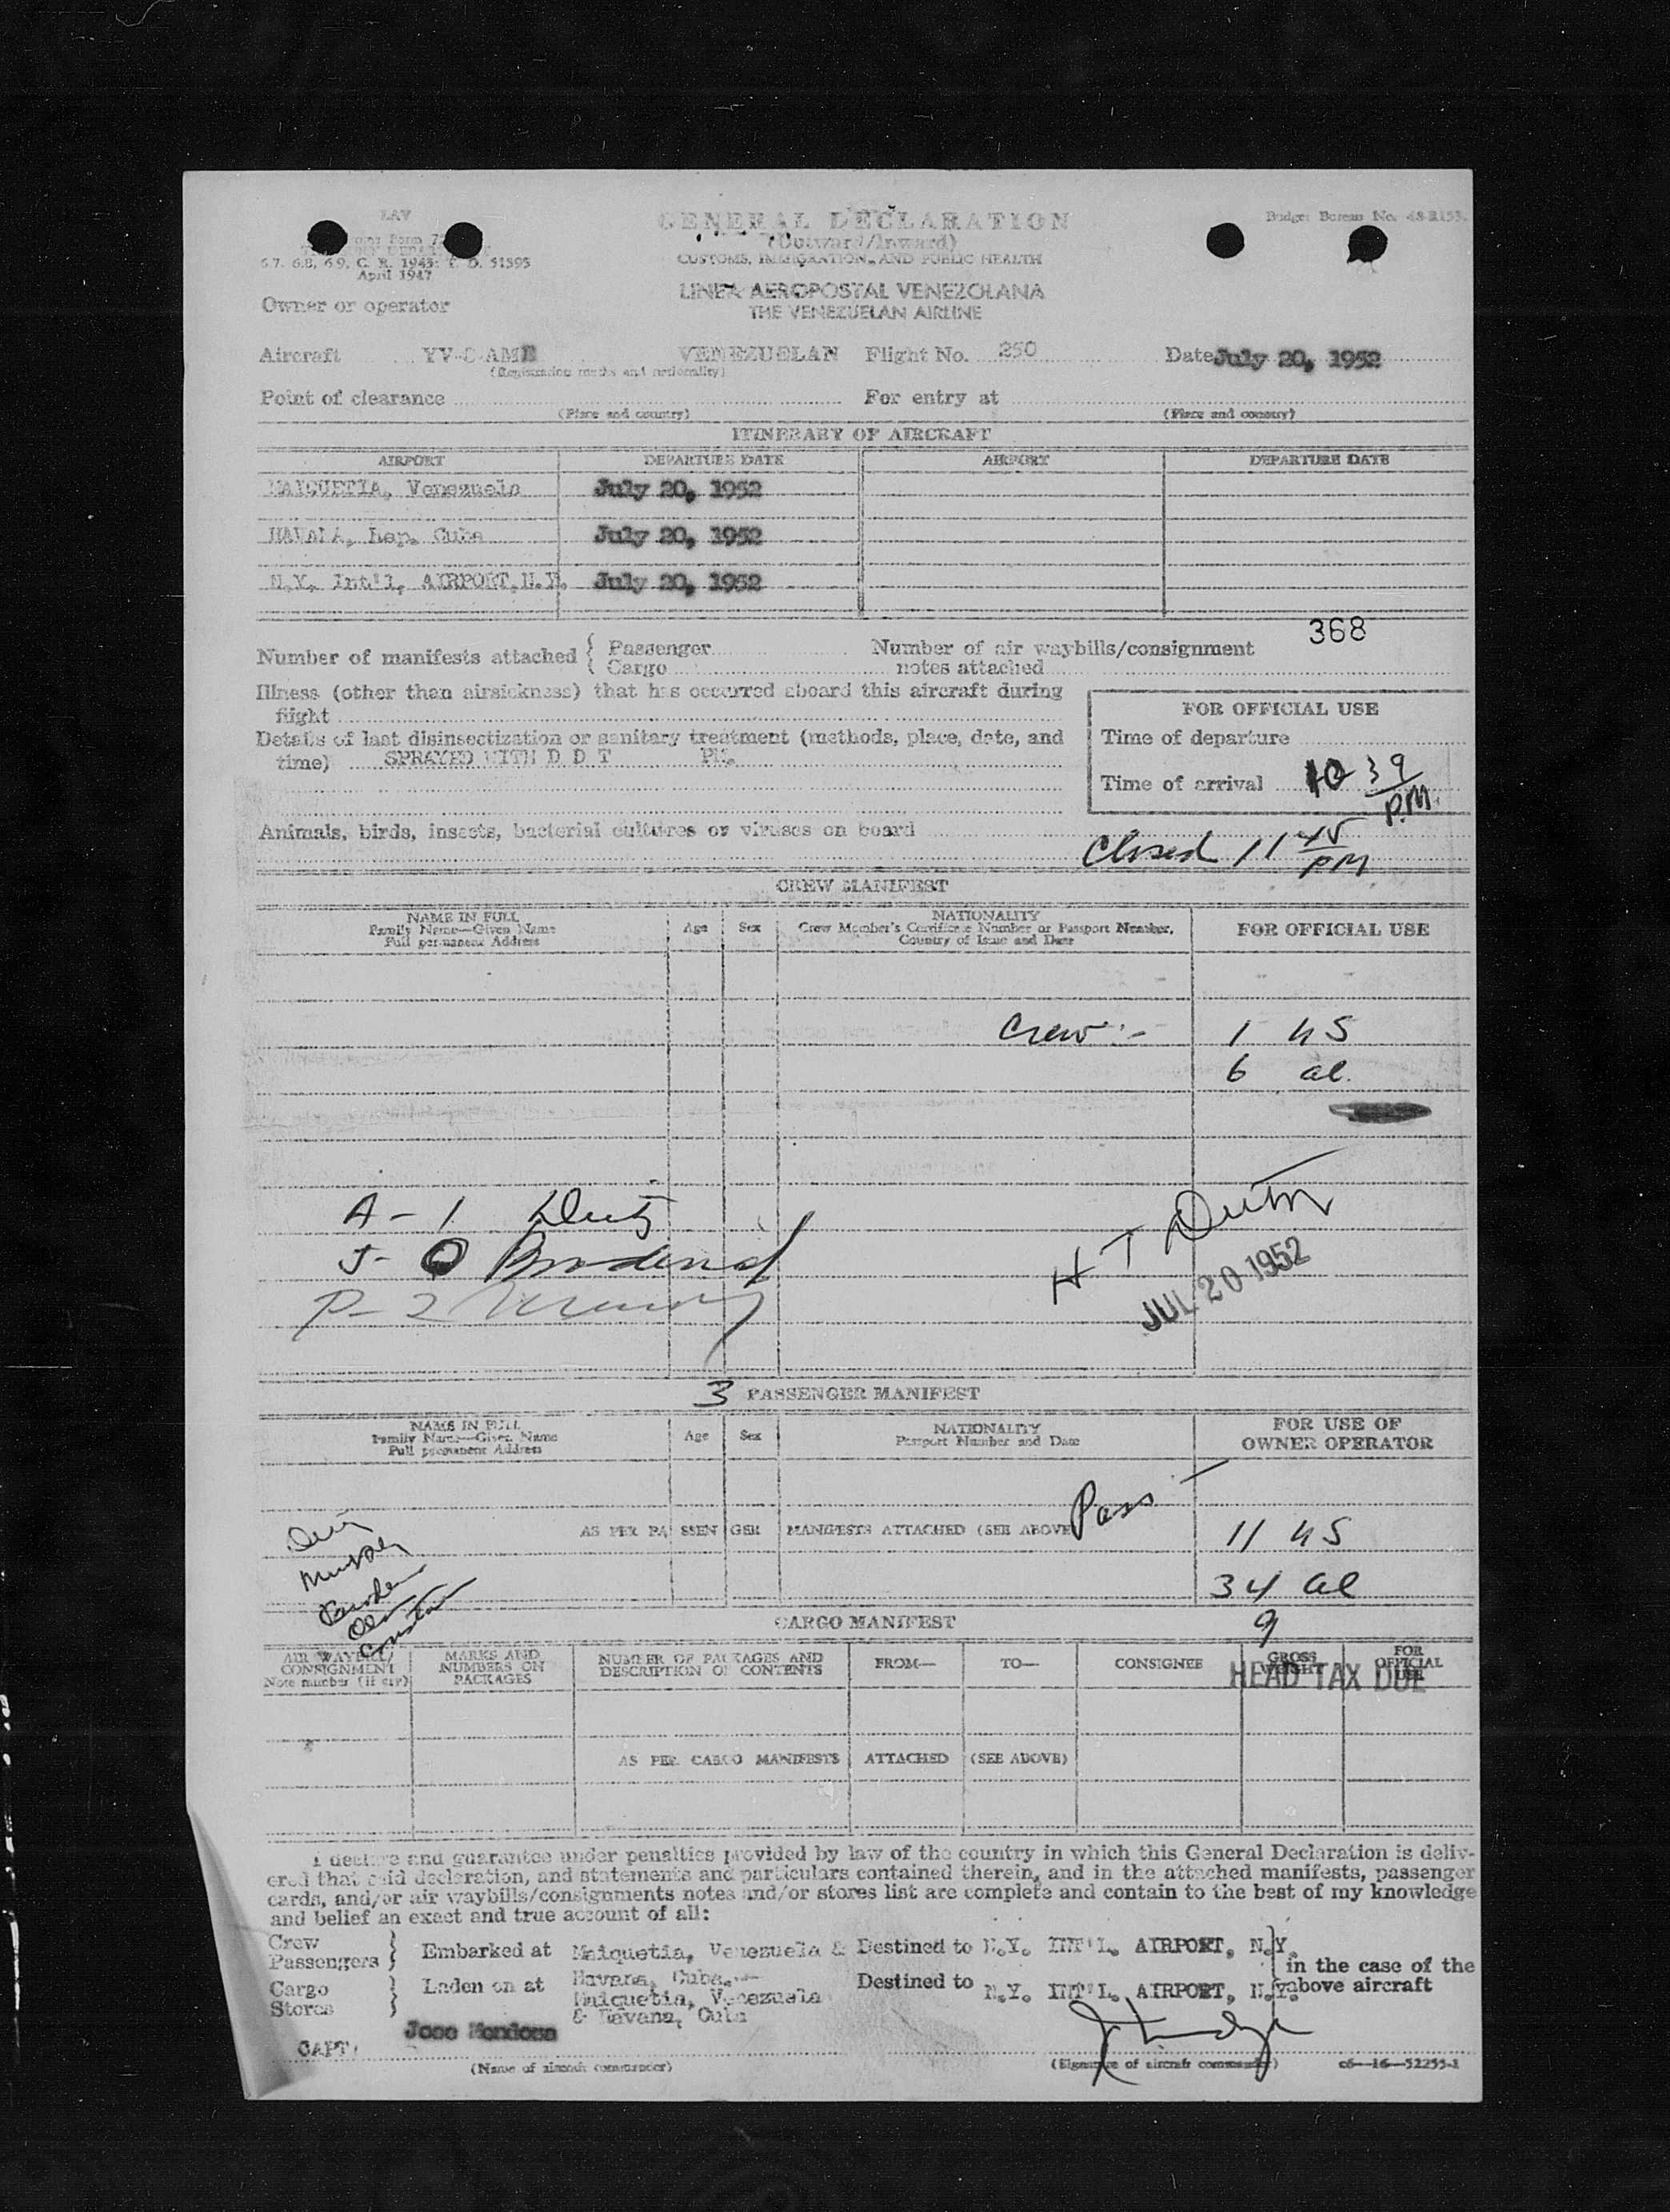 LAV
GENERAL DECLARATION
Budget Bureau No. 48-R155.
(Outward/Inward)
6.7, 6.8, 6.9, C. R. 1943; T. D. 51595
April 1947
CUSTOMS, IMMIGRATION, AND PUBLIC HEALTH
LINEA AEROPOSTAL VENEZOLANA
THE VENEZUELAN AIRLINE
Owner or operator
Aircraft YV-C-AME VENEZUELAN Flight No. 250 Date July 20, 1952
(Registration marks and nationality)
Point of clearance For entry at
(Place and country) (Place and country)
ITINERARY OF AIRCRAFT
AIRPORT DEPARTURE DATE AIRPORT DEPARTURE DATE
MAIQUETIA, Venezuela July 20, 1952
HAVANA, Rep. Cuba July 20, 1952
N.Y. Int'l, AIRPORT, N.Y. July 20, 1952
368
Number of manifests attached { Passenger Number of air waybills/consignment
{ Cargo notes attached
Illness (other than airsickness) that has occurred aboard this aircraft during
flight
FOR OFFICIAL USE
Details of last disinsectization or sanitary treatment (methods, place, date, and
Time of departure
time) SPRAYED WITH D D T PM.
Time of arrival 10 39 PM
Animals, birds, insects, bacterial cultures or viruses on board
Closed 11 45 PM
CREW MANIFEST
NAME IN FULL
Family Name—Given Name
Full permanent Address
Age Sex
NATIONALITY
Crew Member's Certificate Number or Passport Number,
Country of Issue and Date
FOR OFFICIAL USE
Crew:- 1 US
6 al.
A - 1
J - 0
P - 2
H T
JUL 20 1952
3 PASSENGER MANIFEST
NAME IN FULL
Family Name—Given Name
Full permanent Address
Age Sex
NATIONALITY
Passport Number and Date
FOR USE OF
OWNER OPERATOR
Pass
AS PER PASSENGER MANIFESTS ATTACHED (SEE ABOVE
11 US
34 al
CARGO MANIFEST 9
AIR WAYBILL/
CONSIGNMENT
Note number (if any)
MARKS AND
NUMBERS ON
PACKAGES
NUMBER OF PACKAGES AND
DESCRIPTION OF CONTENTS
FROM— TO— CONSIGNEE
GROSS
WEIGHT
FOR
OFFICIAL
USE
HEAD TAX DUE
AS PER CARGO MANIFESTS ATTACHED (SEE ABOVE)
I declare and guarantee under penalties provided by law of the country in which this General Declaration is deliv-
ered that said declaration, and statements and particulars contained therein, and in the attached manifests, passenger
cards, and/or air waybills/consignments notes and/or stores list are complete and contain to the best of my knowledge
and belief an exact and true account of all:
Crew
Passengers } Embarked at Maiquetia, Venezuela & Destined to N.Y. INT'L. AIRPORT, N.Y.
Havana, Cuba.
in the case of the
Cargo
Stores } Laden on at Maiquetia, Venezuela Destined to N.Y. INT'L. AIRPORT, N.Y. above aircraft
& Havana, Cuba
CAPT:
(Name of aircraft commander) (Signature of aircraft commander) c6—16—52255-1